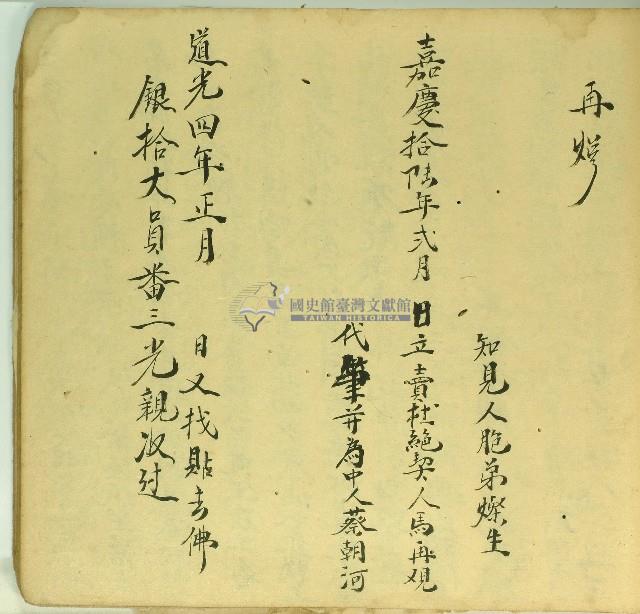 再㷫
知見人胞弟燦生
嘉慶拾陸年弍月 日立賣杜絕契人馬再观
代筆并為中人蔡朝河
道光四年正月 日又找貼去佛
銀拾大員番三光親收过
國史館臺灣文獻館
TAIWAN HISTORICA